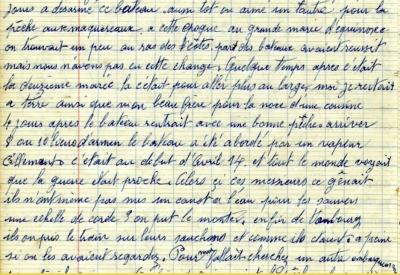 jours a désarmé ce bateau. aussi tot on arme un tautre pour la
pêche aux maquereaux. a cette époque au grande marée d'equinoxe
on trouvait un peu au ras des bêtes, part des bateaux avaient reussit
mais nous n'avons pas eu cette change. Quelque temps apres c'était
la deuxieme marée, la c'était pour aller plus au large, moi je restait
a terre ainsi que mon beau frère pour la noce d'une cousine
jours après le bateau rentrait avec une bonne pêche. arriver
8 ou 10 lieus d'armen le bateau a été abordé par un vapeur
allemand. c'était au debut d'Avril 14. et tout le monde voyait
que la guerre était proche. Alors si ces messieurs ce gênait
ils n'ont meme pas mis un canot a l'eau pour les sauver
une echelle de corde &amp; on put le monter. enfin de
ils on pris le train sur leurs et comme ils a peine
si on les avaient regardés. Pour nous fallait cherchez un autre embarquement